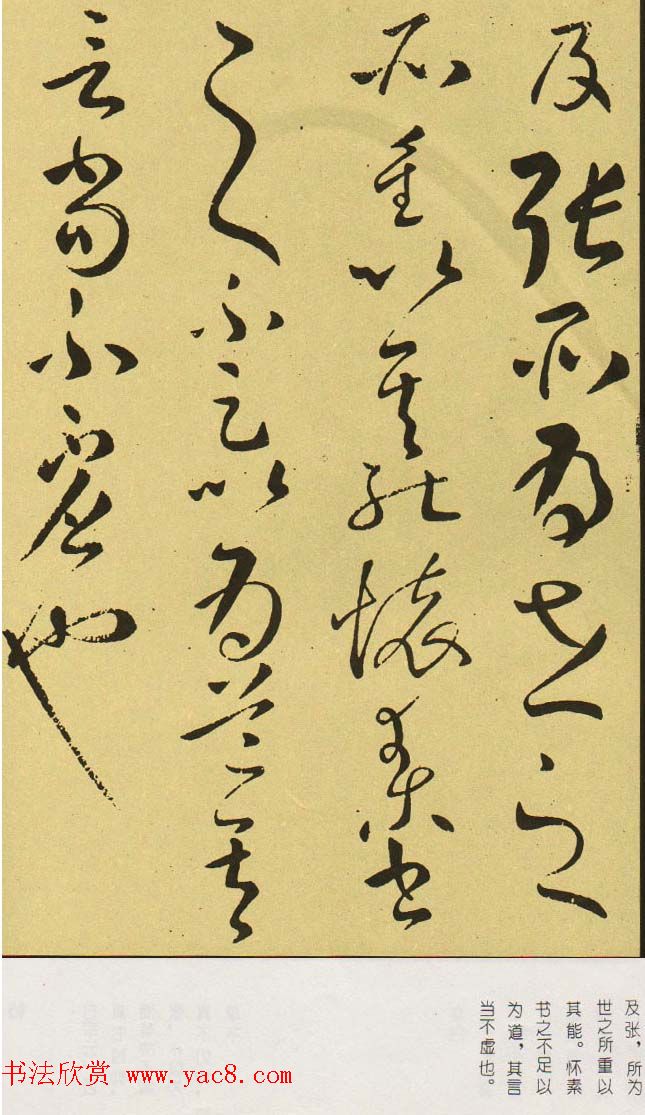 及張所為世之
所重以其能懷素書
之不足以為道其
言當不虛也
及张，所为
世之所重以
其能。怀素
书之不足以
为道，其言
当不虚也。
书法欣赏 www.yac8.com